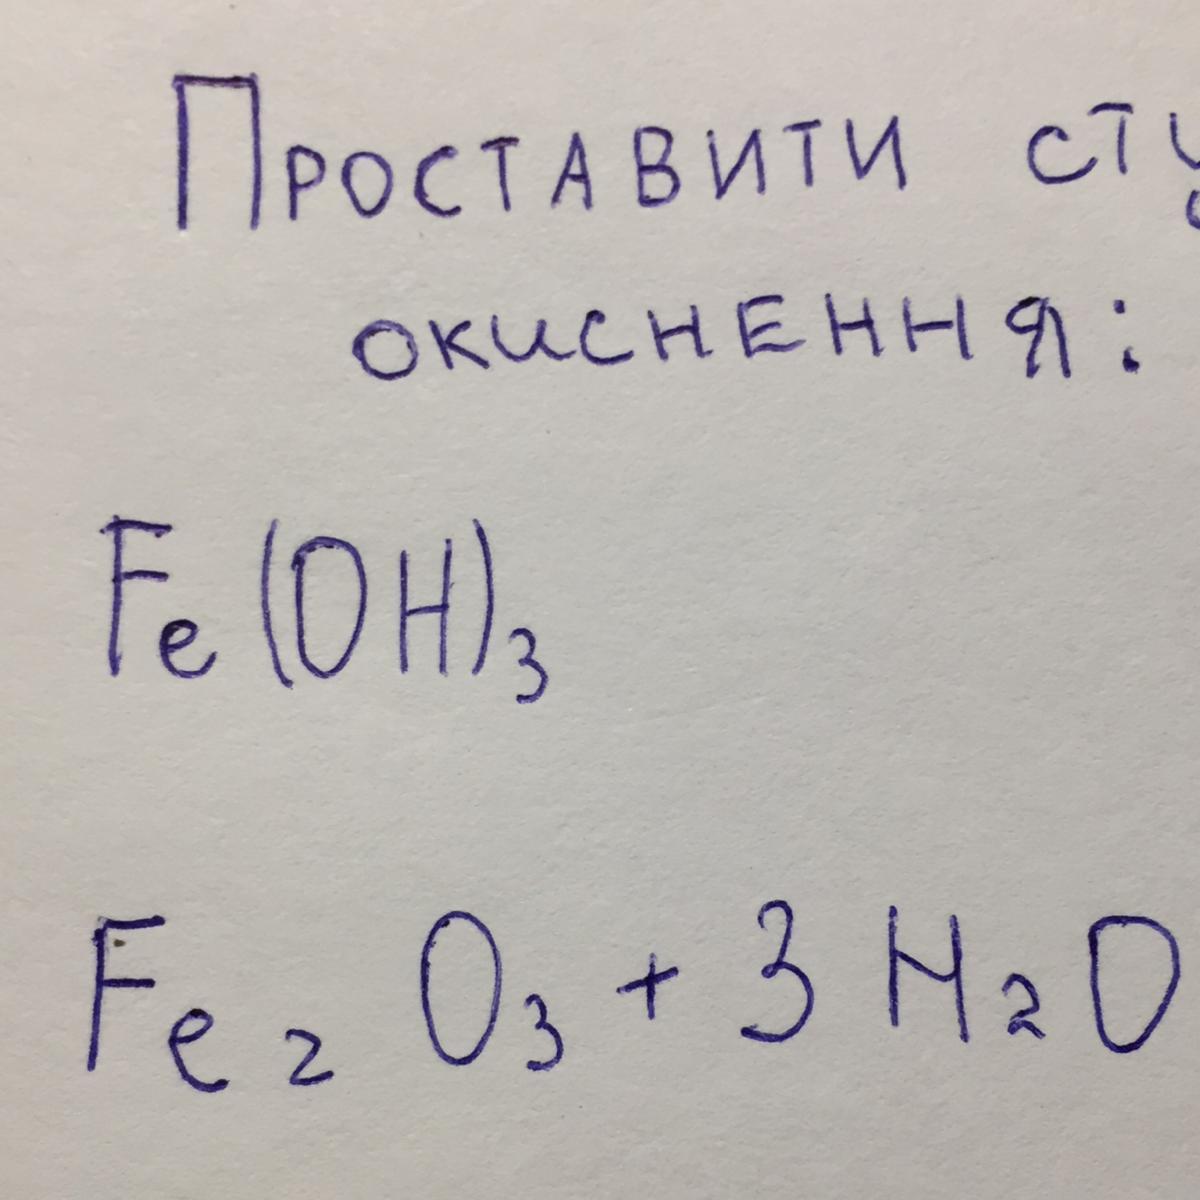 Проставити сту
окиснення:
Fe(OH)₃
Fe₂O₃ + 3H₂O